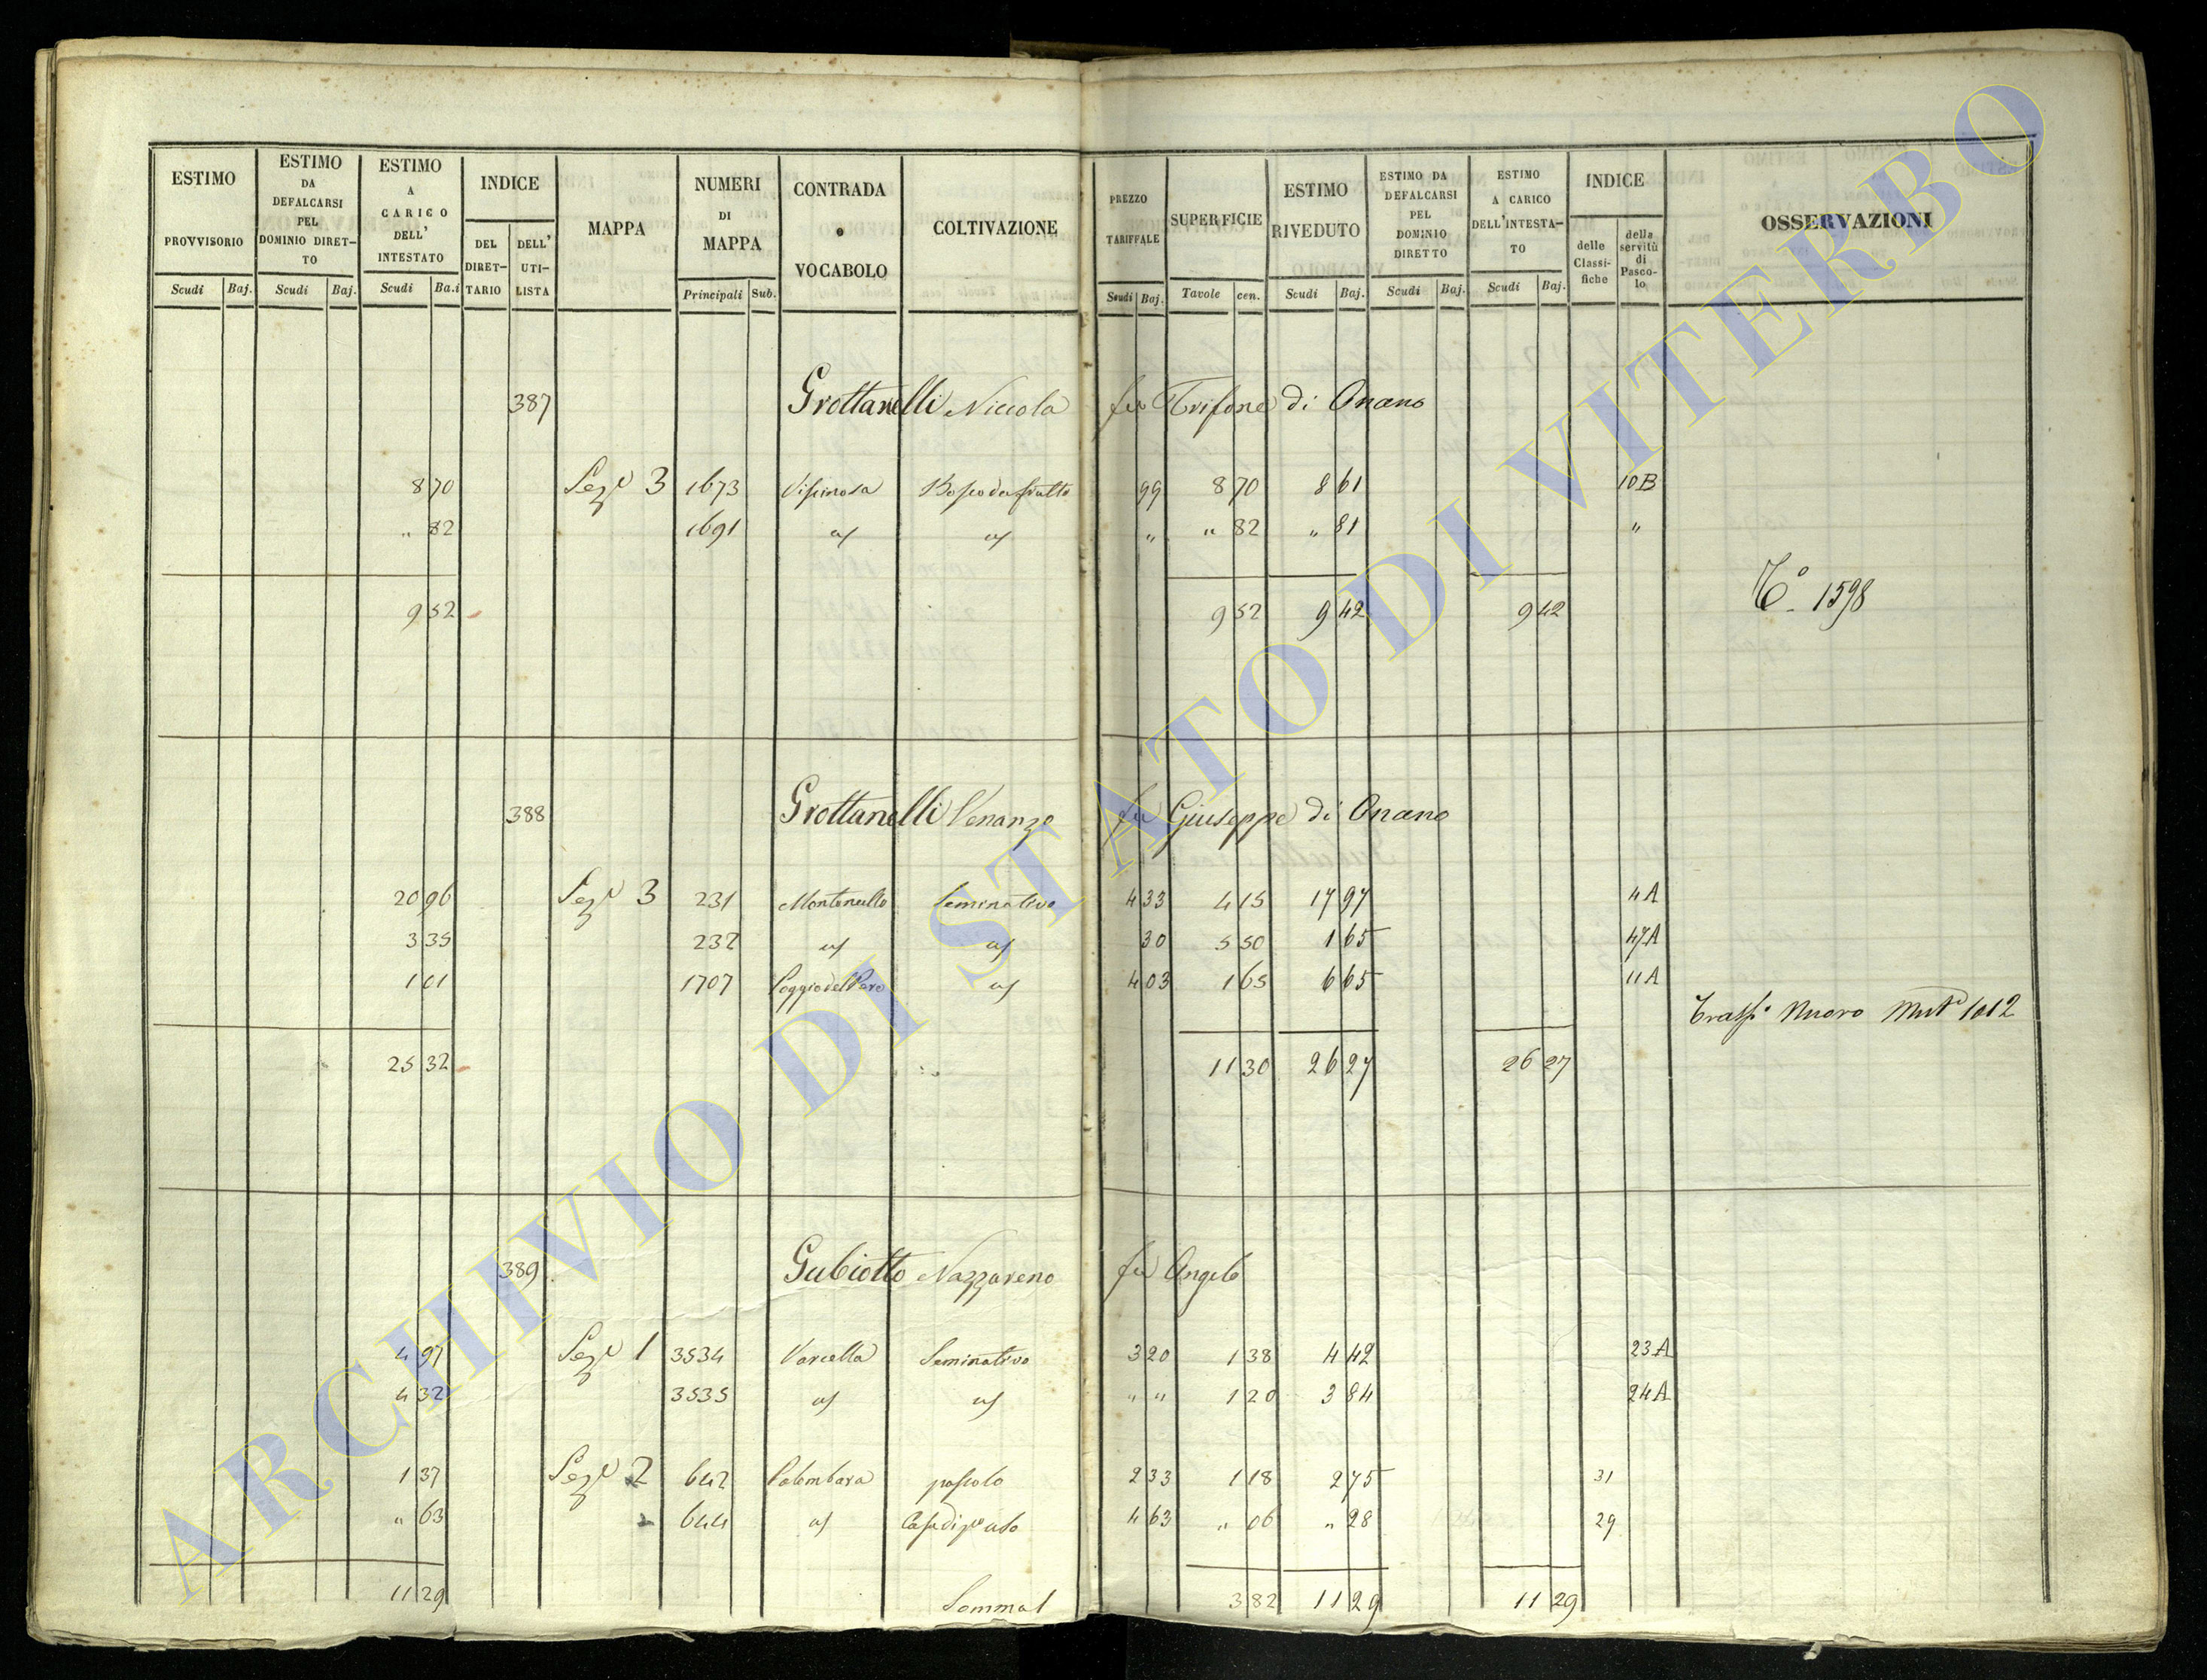 ESTIMO PROVVISORIO Scudi Baj.
ESTIMO DA DEFALCARSI PEL DOMINIO DIRET-TO Scudi Baj.
ESTIMO A CARICO DELL' INTESTATO Scudi Ba.i
INDICE DEL DIRET-TARIO DELL' UTI-LISTA
MAPPA
NUMERI DI MAPPA Principali Sub.
CONTRADA o VOCABOLO
COLTIVAZIONE
PREZZO TARIFFALE Scudi Baj.
SUPERFICIE Tavole cen.
ESTIMO RIVEDUTO Scudi Baj.
ESTIMO DA DEFALCARSI PEL DOMINIO DIRETTO Scudi Baj.
ESTIMO A CARICO DELL'INTESTA-TO Scudi Baj.
INDICE delle Classi-fiche della servitù di Pasco-lo
OSSERVAZIONI
387 Grottanelli Niccola fu Trifone di Onano
8 70 Sez.e 3 1673 Vispinosa Bosco da frutto 99 8 70 8 61 10B
" 82 1691 " " 82 " 81 "
9 52 9 52 9 42 9 42
T.o 1598
388 Grottanelli Venanzo fu Giuseppe di Onano
20 96 Sez.e 3 231 Montenello Seminativo 4 33 4 15 17 97 4A
3 35 232 30 5 50 1 65 47A
1 01 1707 Poggio del Pero 4 03 1 65 6 65 11A
Trasp.o Nuovo Mut.a 1012
25 32 11 30 26 27 26 27
389 Gubiotto Nazzareno fu Angelo
4 97 Sez.e 1 3534 Varcella Seminativo 3 20 1 38 4 42 23A
4 32 3535 " " 1 20 3 84 24A
1 37 Sez.e 2 642 Palombara pascolo 2 33 1 18 2 75 31
" 63 644 Casa di p.o uso 4 63 " 06 " 28 29
11 29 Somma 3 82 11 29 11 29
ARCHIVIO DI STATO DI VITERBO